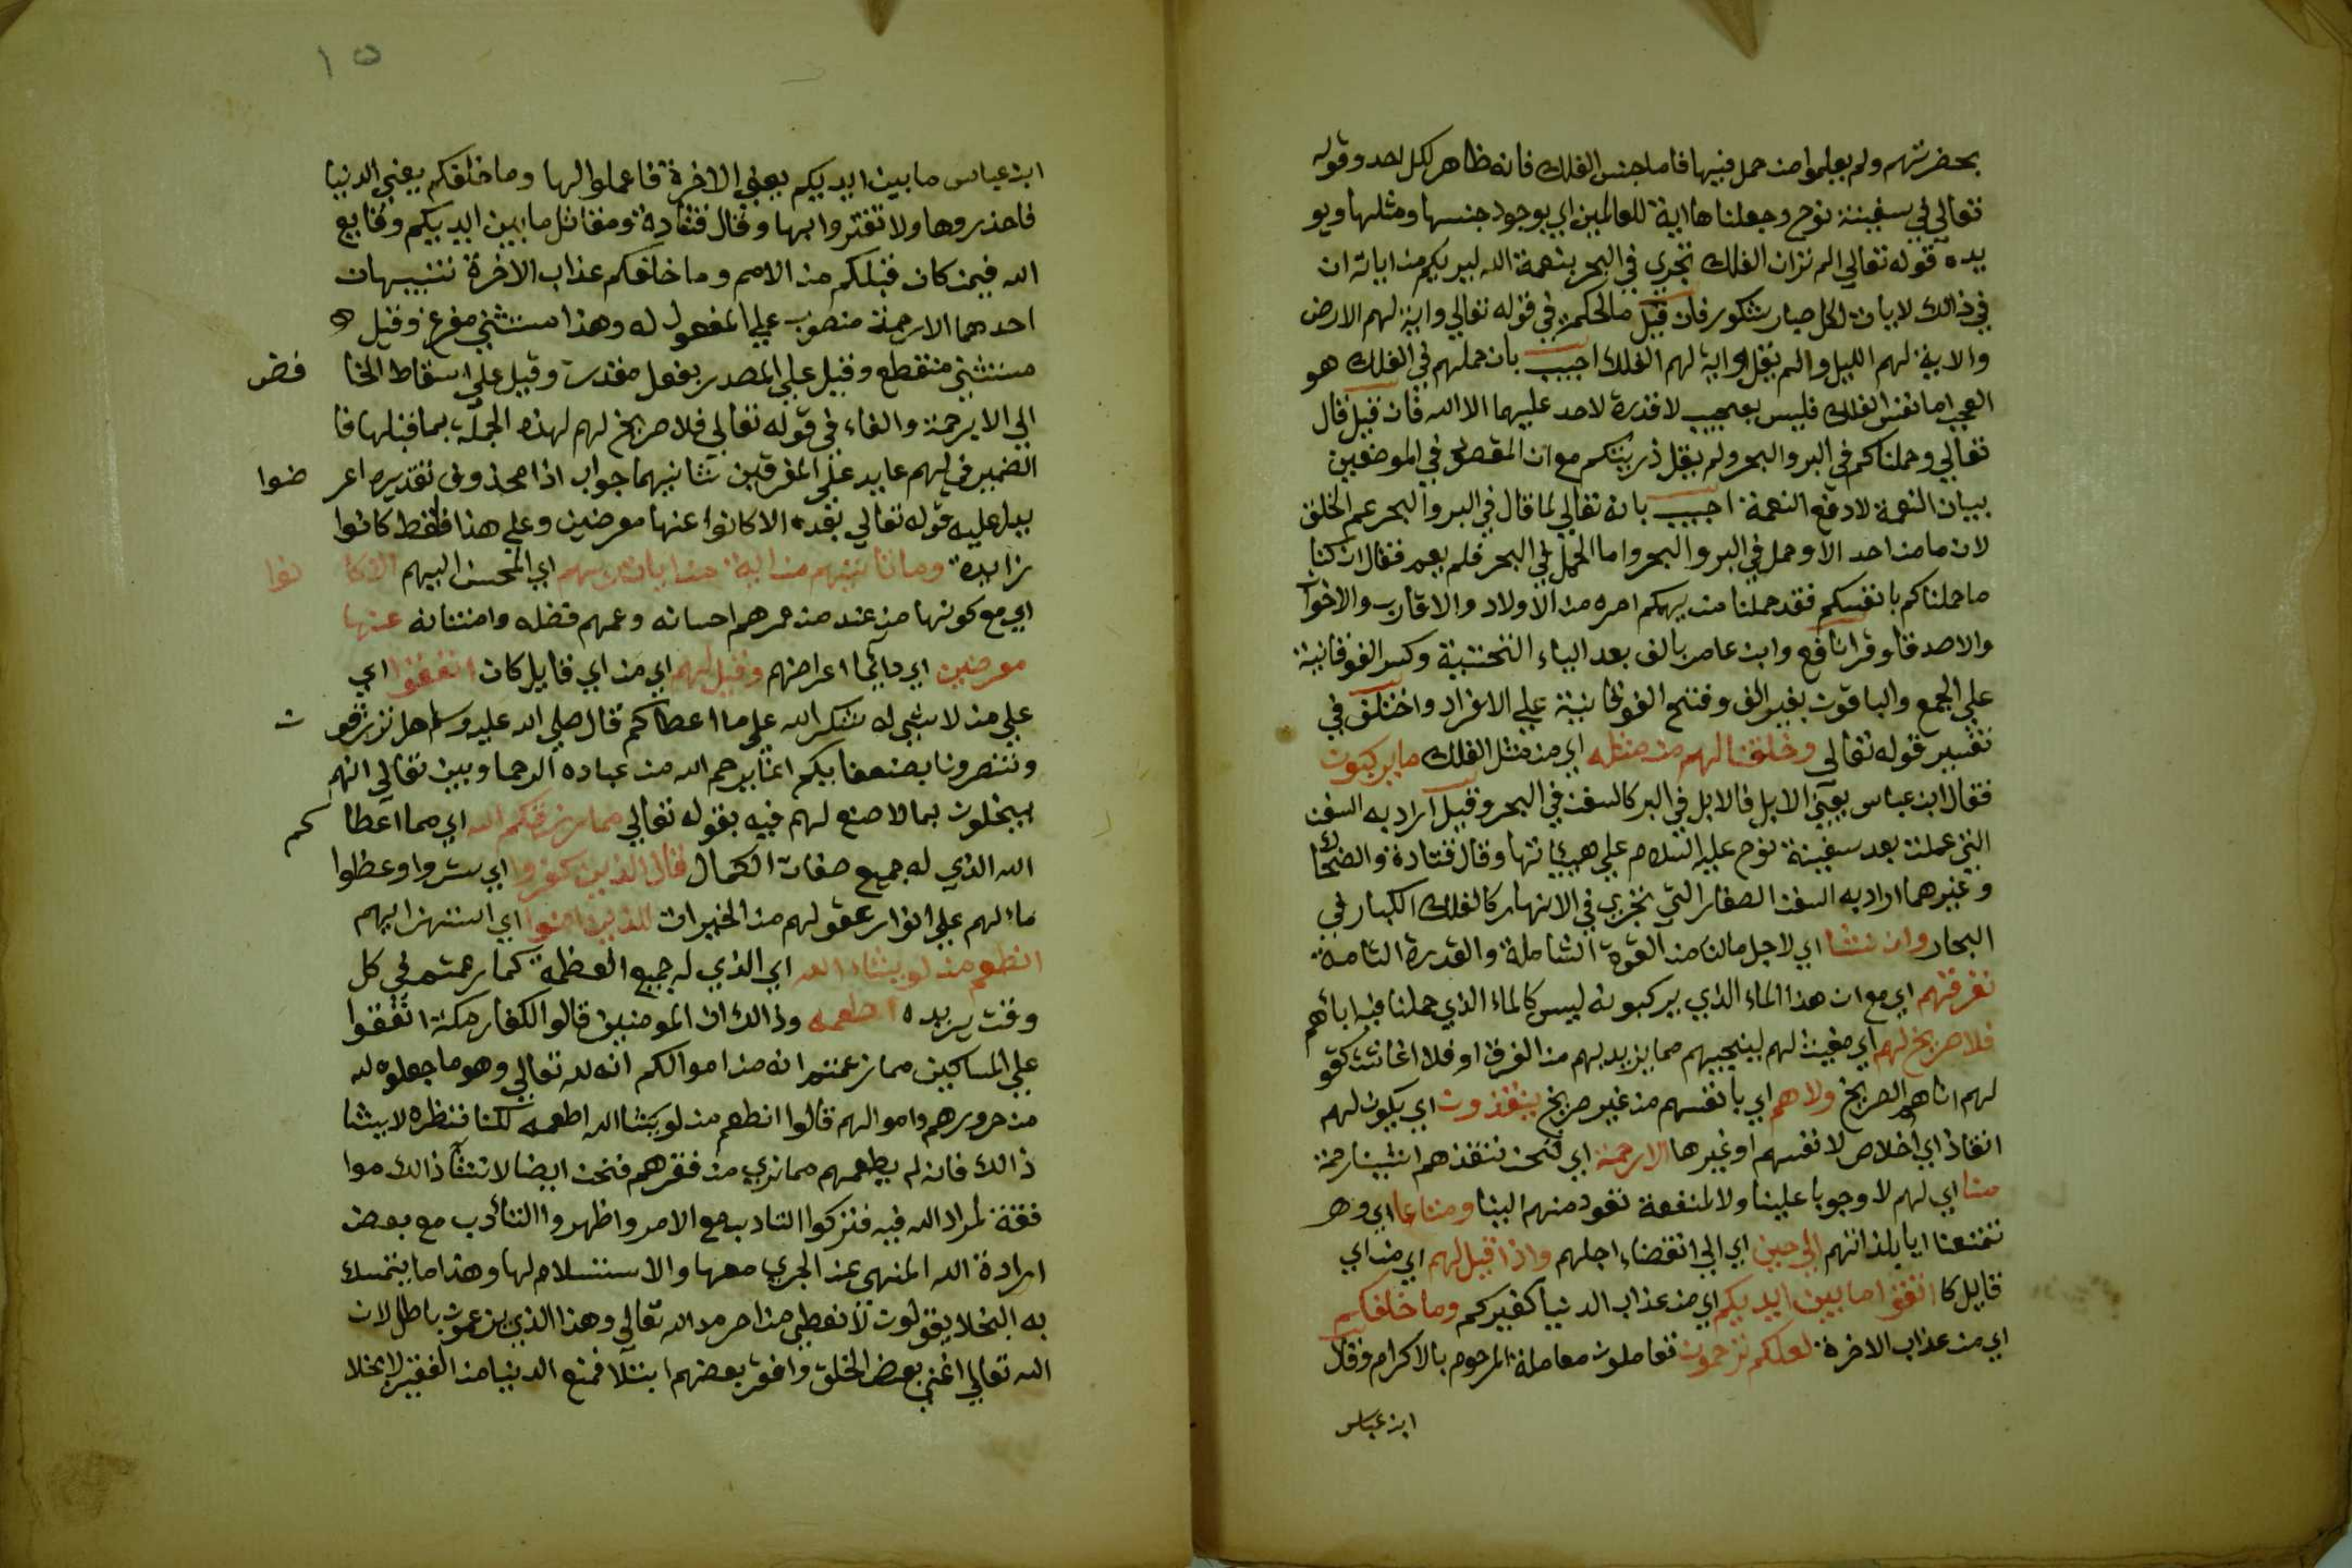 بحضرتهم ولم يعلموا من حمل فيها فاما جنس الفلك فانه ظاهر لكل احد وقوله
تعالي في سفينة نوح وجعلناها اية للعالمين اي بوجود جنسها ومثلها ويو
يده قوله تعالي الم تر ان الفلك تجري في البحر بنعمة الله ليريكم من اياته ان
في ذالك لايات لكل صبار شكور فان قيل ما الحكمة في قوله تعالي واية لهم الارض
والاية لهم الليل والم يقل واية لهم الفلك اجيب بان حملهم في الفلك هو
العجب اما نفس الفلك فليس بعجيب لا قدرة لاحد عليهما الا الله فان قيل قال
تعالي وحملناكم في البر والبحر ولم يقل ذريتكم مع ان المقصود في الموضعين
بيان النعمة لا دفع النعمة اجيب بانه تعالي لما قال في البر والبحر عم الخلق
لان ما من احد الا وحمل في البر والبحر واما الحمل في البحر فلم يعم فقال ان كنا
ما حملناكم بانفسكم فقد حملنا من يهمكم امره من الاولاد والاقارب والاخوا
والاصدقا وقرا نافع وابن عامر بالف بعد الياء التحتية وكسر الفوقانية
علي الجمع والباقون بغير الف وفتح الفوقانية علي الافراد واختلف في
تفسير قوله تعالي وخلقنا لهم من مثله اي من مثل الفلك ما يركبون
فقال ابن عباس يعني الابل فالابل في البر كالسفن في البحر وقيل اراد به السفن
التي عملت بعد سفينة نوح عليه السلام علي هيياتها وقال قتادة والضحاك
وغيرهما اراد به السفن الصغار التي تجري في الانهار كالفلك الكبار في
البحار وان نشا اي لاجل مالنا من القوة الشاملة والقدرة التامة
نغرقهم اي مع ان هذا الماء الذي يركبونه ليس كالماء الذي حملنا فيه اباهم
فلا صريخ لهم اي مغيث لهم لينجيهم مما يريد بهم من الغرق او فلا اغاثة كقو
لهم اتاهم الصريخ ولا هم اي بانفسهم من غير صريخ ينقذون اي يكون لهم
انقاذ اي اخلاص لانفسهم او غيرها الا رحمة اي فنحن ننقذهم ان شينا رحمة
منا اي لهم لا وجوبا علينا ولا لمنفعة تعود منهم الينا ومتاعا اي وهو
تمتعنا اياهم بلذاتهم الي حين اي الي انقضاء اجلهم واذا قيل لهم اي من اي
قايل كا اتقوا ما بين ايديكم اي من عذاب الدنيا كغيركم وما خلفكم
اي من عذاب الاخرة لعلكم ترحمون تعاملون معاملة المرحوم بالاكرام وقال
ابن عباس
١٥
ابن عباس ما بين ايديكم يعني الاخرة فاعملوا لها وما خلفكم يعني الدنيا
فاحذروها ولا تغتروا بها وقال قتادة ومقاتل ما بين ايديكم وقايع
الله فيمن كان قبلكم من الامم وما خلفكم عذاب الاخرة تنبيهان
احدهما الا رحمة منصوب علي المفعول له وهذا مستثني مفرغ وقيل
مستثني منقطع وقيل علي المصدر بفعل مقدر وقيل علي اسقاط الخا فض
الي الا برحمة والفاء في قوله تعالي فلا صريخ لهم لهذه الجملة بما قبلها فا
الضمير في لهم عايد علي المغرقين ثانيهما جواب اذا محذوف تقديره اعر ضوا
يدل عليه قوله تعالي بعده الا كانوا عنها معرضين وعلي هذا فلفظ كانوا
زايدة وما تاتيهم من اية من ايات ربهم اي المحسن اليهم الا كا نوا
اي مع كونها من عند من غمرهم احسانه وعمهم فضله وامتنانه عنها
معرضين اي دائما اعراضهم وقيل لهم اي من اي قايل كان انفقوا اي
علي من لا شي له شكر الله علي ما اعطاكم قال صلي الله عليه وسلم هل ترزقو ن
وتنصرون بضعفايكم انما يرحم الله من عباده الرحما وبين تعالي انهم
يبخلون بما لا صنع لهم فيه بقوله تعالي مما رزقكم الله اي مما اعطا كم
الله الذي له جميع صفات الكمال قال الذين كفروا اي ستروا وغطوا
ما لهم علي انوار عقولهم من الخيرات للذين امنوا اي استهزا بهم
انطعم من لو يشاء الله اي الذي له جميع العظمة كما زعمتم في كل
وقت يريده اطعمه وذالك ان المومنين قالوا لكفار مكة انفقوا
علي المساكين مما زعمتم انه من اموالكم انه لله تعالي وهو ما جعلوه لله
من حروثهم واموالهم قالوا انطعم من لو يشا الله اطعمه لكنا ننظره لا يشا
ذالك فانه لم يطعمهم مما نري من فقرهم فنحن ايضا لا نشا ذالك موا
فقة لمراد الله فيه فتركوا التادب مع الامر واظهروا التادب مع بعض
ارادة الله المنهي عند الجري معها والاستسلام لها وهذا ما يتمسك
به البخلا يقولون لا نعطي من احرمه الله تعالي وهذا الذي يزعمون باطل لان
الله تعالي اغني بعض الخلق وافقر بعضهم ابتلا فمنع الدنيا من الفقير لا بخلا